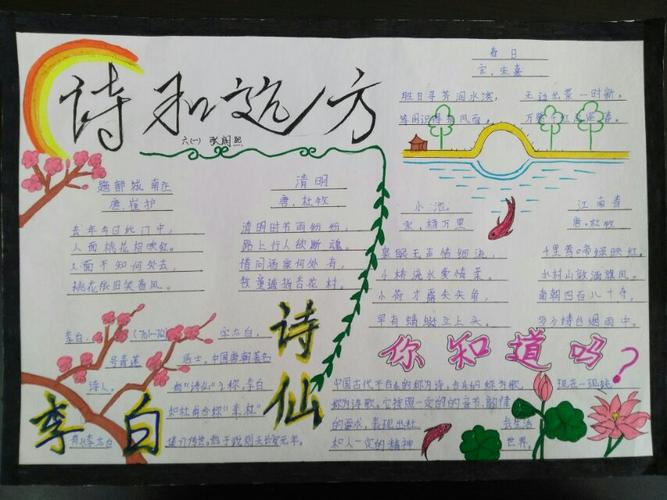 诗和远方
六(一)
春日
宋.朱熹
胜日寻芳泗水滨， 无边光景一时新，
等闲识得东风面， 万紫千红总是春。
题都城南庄
唐.崔护
去年今日此门中，
人面桃花相映红。
人面不知何处去，
桃花依旧笑春风。
清明
唐.杜牧
清明时节雨纷纷，
路上行人欲断魂，
借问酒家何处有，
牧童遥指杏花村。
小池
宋.杨万里
泉眼无声惜细流，
水爱晴柔。
小荷才露尖尖角，
早有蜻蜓立上头。
江南春
唐.杜牧
千里莺啼绿映红，
水村山 酒旗风。
南朝四百八十寺，
多少楼台烟雨中。
李白， (701-762) 字太白，
号青莲居士，中国唐朝著名
诗人。 有“诗仙”之称，李白
和杜甫合称“李杜”
诗仙
李白
你知道吗？
中国古代不合乐的称为诗，合乐的称为歌， 现在一般统
称为诗歌，它按照一定的 音节、韵律
的要求，表现出社会生活
和人一定的精神世界。